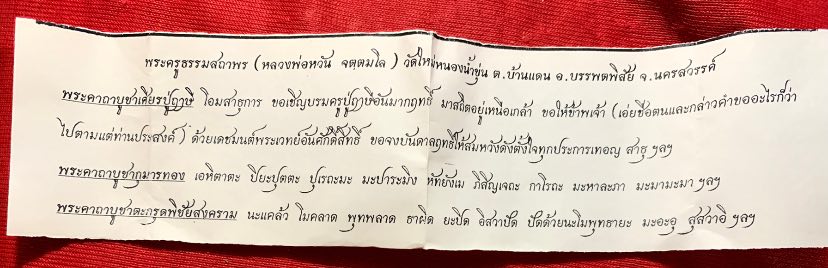 พระครูธรรมสถาพร (หลวงพ่อหวัน จตฺตมโล) วัดใหม่หนองน้ำขุ่น ต.บ้านแดน อ.บรรพตพิสัย จ.นครสวรรค์
พระคาถาบูชาเศียรปู่ฤาษี โอมสาธุการ ขอเชิญบรมครูปู่ฤาษีอันมากฤทธิ์ มาสถิตอยู่เหนือเกล้า ขอให้ข้าพเจ้า (เอ่ยชื่อตนและกล่าวคำขออะไรก็ว่า
ไปตามแต่ท่านประสงค์) ด้วยเดชมนต์พระเวทย์อันศักดิ์สิทธิ์ ขอจงบันดาลฤทธิ์ให้สมหวังดังตั้งใจทุกประการเทอญ สาธุ ฯลฯ
พระคาถาบูชากุมารทอง เอหิตาตะ ปิยะปุตตะ ปุเรถะมะ มะปาระมิง หัทยังเม ภิสิญเจถะ กาโรถะ มะหาละภา มะมามะมา ฯลฯ
พระคาถาบูชาตะกรุดพิชัยสงคราม นะแคล้ว โมคลาด พุทพลาด ธาผิด ยะปิด อิสวาปัด ปัดด้วยนะโมพุทธายะ มะอะอุ สุสวาอิ ฯลฯ